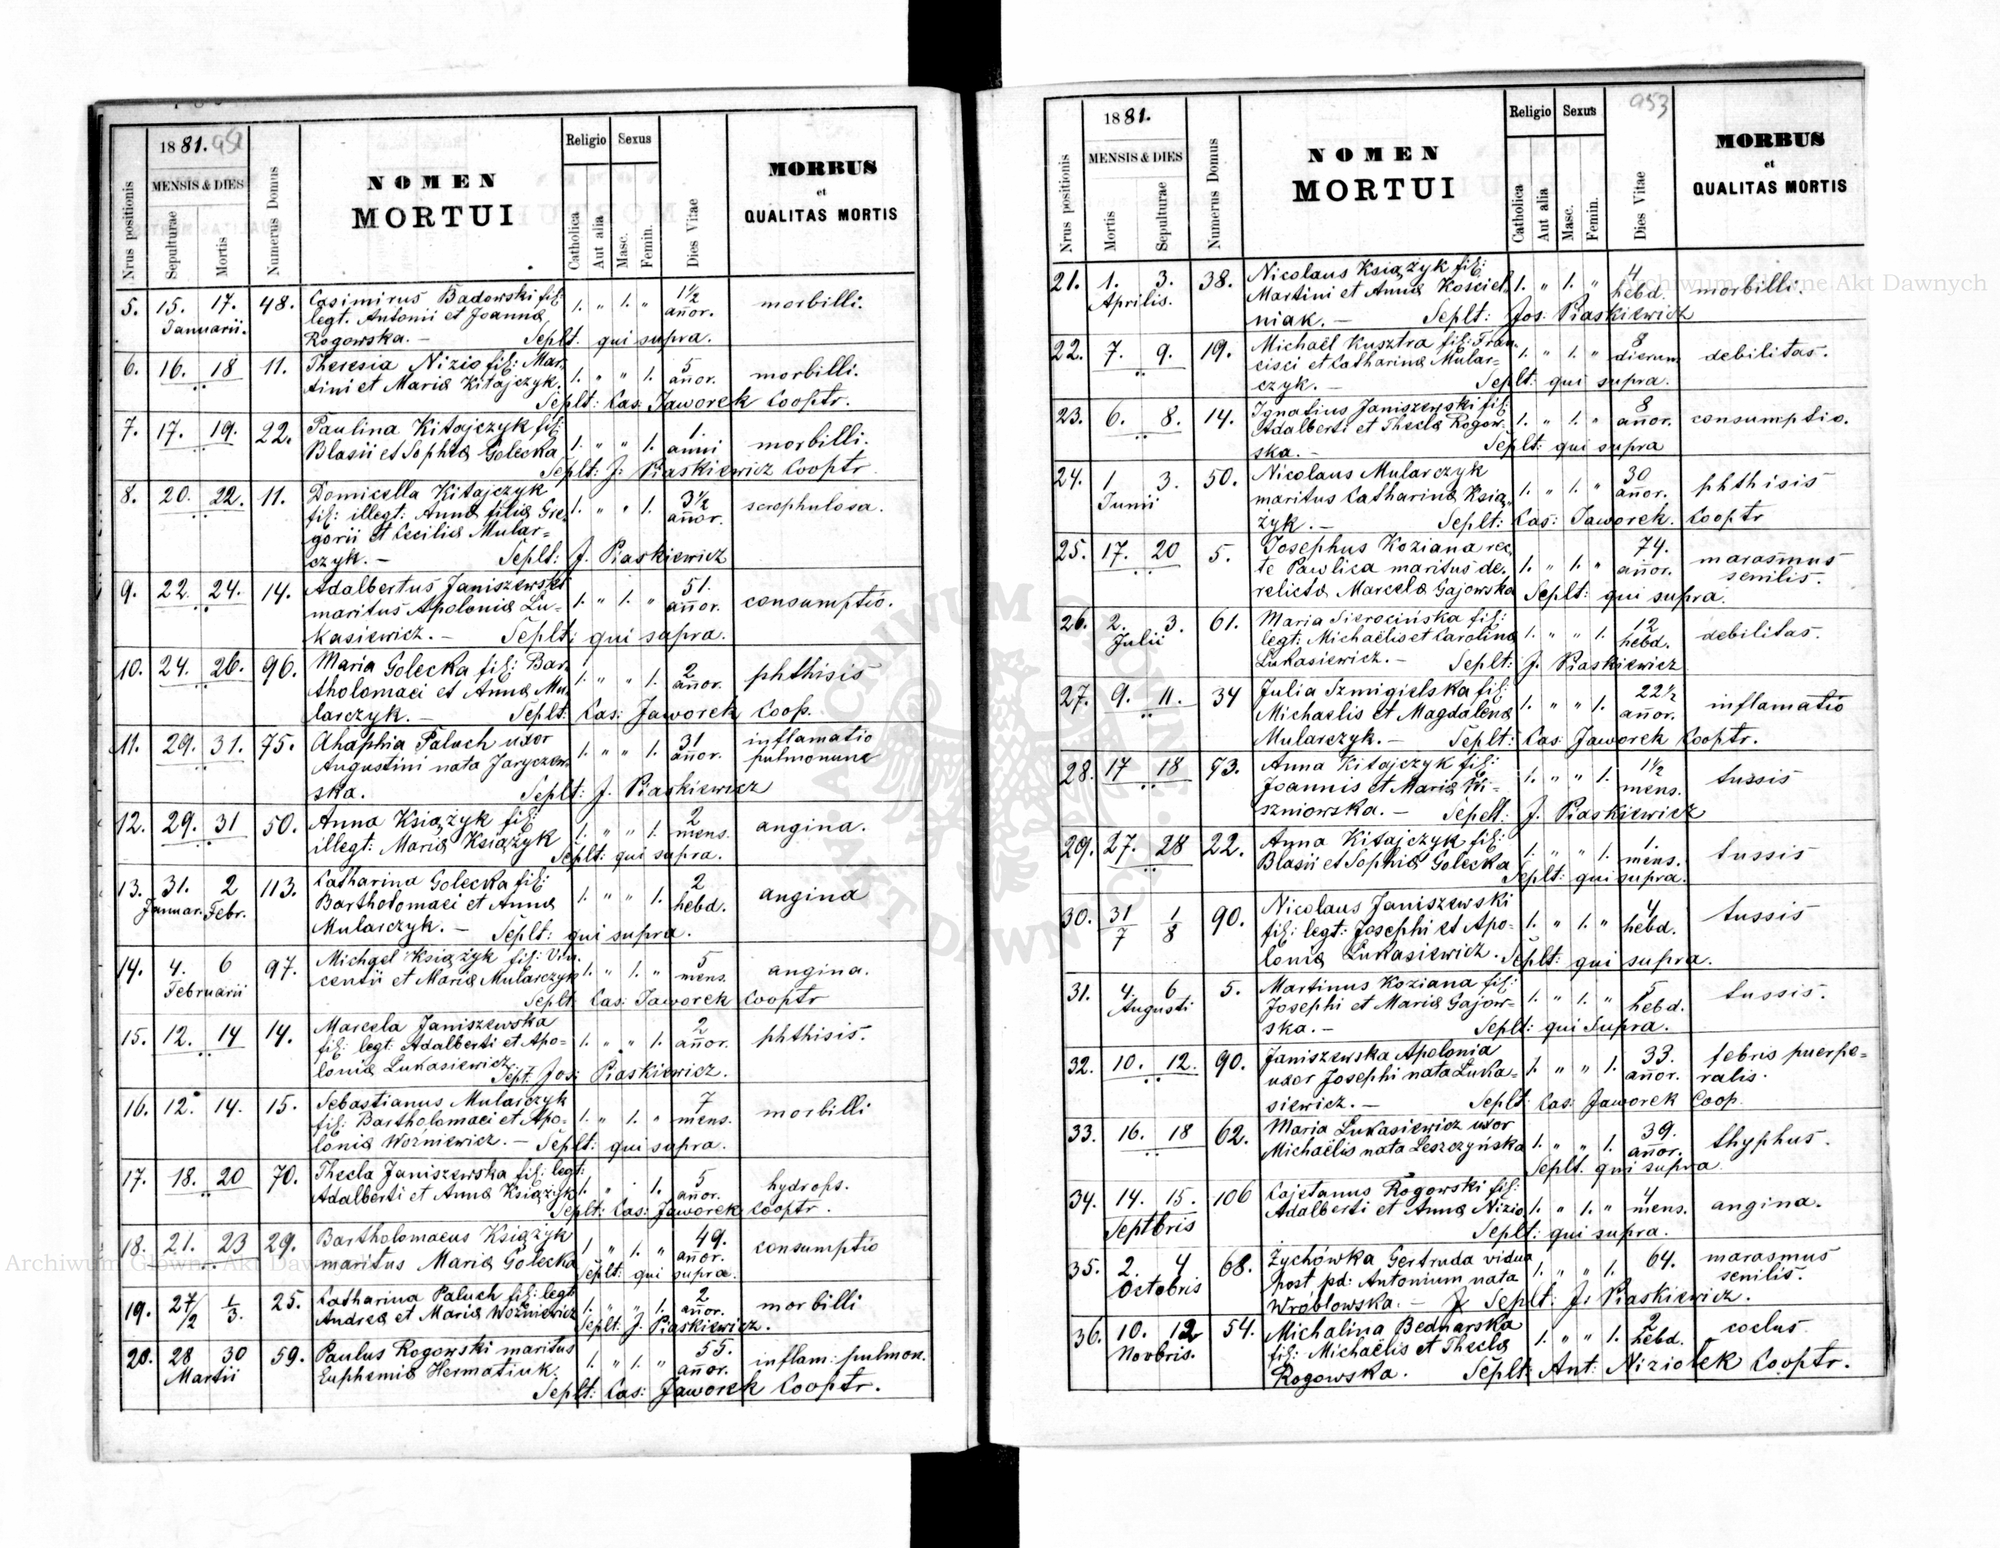 1881. 952
MENSIS & DIES
Nrus positionis
Sepulturae
Mortis
Numerus Domus
NOMEN
MORTUI
Religio
Catholica
Aut alia
Sexus
Masc.
Femin.
Dies Vitae
MORBUS
et
QUALITAS MORTIS
5. 15. 17. 48. Casimirus Badowski fil: 1. " 1. " 1½ morbilli.
Januarii. legt. Antonii et Joanna añor.
Rogowska. — Seplt. qui supra.
6. 16. 18 11. Theresia Nizio fil: Mar- 1. " " 1. 5 morbilli.
tini et Maria Kitajczyk. añor.
Seplt: Cas: Jaworek Cooptr.
7. 17. 19. 22. Paulina Kitajczyk fil: 1. " " 1. 1. morbilli.
Blasii et Sophia Golecka anni
Seplt: J: Piaskiewicz Cooptr.
8. 20. 22. 11. Domicella Kitajczyk 1. " " 1. 3½ scrophulosa.
fil: illegt: Anna filia Gre- añor.
gorii et Cecilia Mular-
czyk. — Seplt: J. Piaskiewicz
9. 22. 24. 14. Adalbertus Janiszewski 1. " 1. " 51. consumptio.
maritus Apolonia Lu- añor.
kasiewicz. — Seplt: qui supra.
10. 24. 26. 96. Maria Golecka fil: Bar- 1. " " 1. 2 phthisis
tholomaei et Anna Mu- añor.
larczyk. — Seplt: Cas: Jaworek Coop.
11. 29. 31. 75. Ahaphia Paluch uxor 1. " " 1. 31 inflamatio
Augustini nata Jaryczew- añor. pulmonum
ska. Seplt: J. Piaskiewicz
12. 29. 31 50. Anna Książyk fil: 1. " " 1. 2 angina.
illegt: Maria Książyk mens.
Seplt: qui supra.
13. 31. 2 113. Catharina Golecka fil: 1. " " 1. 2 angina
Januar. Febr. Bartholomaei et Anna hebd.
Mularczyk. — Seplt: qui supra.
14. 4. 6 97. Michael Książyk fil: Vin- 1. " 1. " 5 angina.
Februarii centii et Maria Mularczyk mens.
Seplt: Cas: Jaworek Cooptr
15. 12. 14 14. Marcela Janiszewska 1. " " 1. 2 phthisis.
fil: legt: Adalberti et Apo- añor.
lonia Lukasiewicz. Sept. Jos: Piaskiewicz.
16. 12. 14. 15. Sebastianus Mularczyk 1. " 1. " 7 morbilli
fil: Bartholomaei et Apo- mens.
lonia Wozniewicz. — Seplt: qui supra.
17. 18. 20 70. Thecla Janiszewska fil: legt: 1. " . 1. 5 hydrops.
Adalberti et Anna Książyk añor.
Seplt: Cas: Jaworek Cooptr.
18. 21. 23 29. Bartholomaeus Książyk 1 " 1. " 49. consumptio
maritus Maria Golecka añor.
Seplt: qui supra.
19. 27/2 1/3. 25. Catharina Paluch fil: legt: 1. " " 1. 2 morbilli
Andrea et Maria Woźniewicz añor.
Seplt: J. Piaskiewicz.
20. 28 30 59. Paulus Rogowski maritus 1. " 1. " 55. inflam: pulmon.
Martii Euphemia Hermatiuk. añor.
Seplt: Cas: Jaworek Cooptr.
1881.
953
MENSIS & DIES
Nrus positionis
Mortis
Sepulturae
Numerus Domus
NOMEN
MORTUI
Religio
Catholica
Aut alia
Sexus
Masc.
Femin.
Dies Vitae
MORBUS
et
QUALITAS MORTIS
21. 1. 3. 38. Nicolaus Książyk fil: 1. " 1. " 4 morbilli.
Aprilis. Martini et Anna Kościel- hebd.
niak. — Seplt: Jos: Piaskiewicz
22. 7. 9. 19. Michaël Kusztra fil: Fran- 1. " 1. " 8 debilitas.
cisci et Catharina Mular- dierum
czyk. — Seplt: qui supra.
23. 6. 8. 14. Ignatius Janiszewski fil: 1. " 1. " 8 consumptio.
Adalberti et Thecla Rogow- añor.
ska. — Seplt: qui supra
24. 1 3. 50. Nicolaus Mularczyk 1. " 1. " 30 phthisis
Junii maritus Catharina Ksią- añor.
żyk. — Seplt: Cas: Jaworek. Cooptr
25. 17. 20 5. Josephus Koziana rec- 1. " 1. " 74. marasmus
te Pawlica maritus de- añor. senilis.
relicta Marcela Gajowska Seplt: qui supra.
26. 2. 3. 61. Maria Sierocińska fil: 1. " " 1. 12 debilitas.
Julii legt: Michaëlis et Carolina hebd.
Lukasiewicz. — Seplt: J. Piaskiewicz
27. 9. 11. 34 Julia Szmigielska fil: 1. " " 1. 22½ inflamatio
Michaëlis et Magdalena añor.
Mularczyk. — Seplt: Cas: Jaworek Cooptr.
28. 17 18 93. Anna Kitajczyk fil: 1. " " 1. 1½ tussis
Joannis et Maria Wi- mens.
szniowska. — Seplt: J. Piaskiewicz
29. 27. 28 22. Anna Kitajczyk fil: 1. " " 1. 1. tussis
Blasii et Sophia Golecka mens.
Seplt: qui supra.
30. 31/7 1/8 90. Nicolaus Janiszewski 1. " 1. " 4 tussis
fil: legt: Josephi et Apo- hebd.
lonia Lukasiewicz. Seplt: qui supra.
31. 4. 6 5. Martinus Koziana fil: 1. " 1. " 5 tussis.
Augusti Josephi et Maria Gajow- hebd.
ska. — Seplt: qui Supra.
32. 10. 12. 90. Janiszewska Apolonia 1. " " 1. 33. febris puerpe-
uxor Josephi nata Luka- añor. ralis.
siewicz. — Seplt: Cas: Jaworek Coop.
33. 16. 18 62. Maria Lukasiewicz uxor 1. " " 1. 39. thyphus.
Michaëlis nata Leszczyńska añor.
Seplt. qui supra
34. 14. 15. 106 Cajetanus Rogowski fil: 1. " 1. " 4 angina.
Septbris Adalberti et Anna Nizio mens.
Seplt: qui supra.
35. 2. 4 68. Żychówka Gertruda vidua 1. " " 1. 64. marasmus
Octobris post pd: Antonium nata senilis.
Wróblowska. — J Seplt: J: Piaskiewicz.
36. 10. 12 54. Michalina Bednarska 1. " " 1. 2 coclus.
Novbris. fil: Michaëlis et Thecla hebd.
Rogowska. Seplt: Ant: Niziolek Cooptr.
Archiwum Główne Akt Dawnych
Archiwum Główne Akt Dawnych
ARCHIWUM GŁÓWNE AKT DAWNYCH